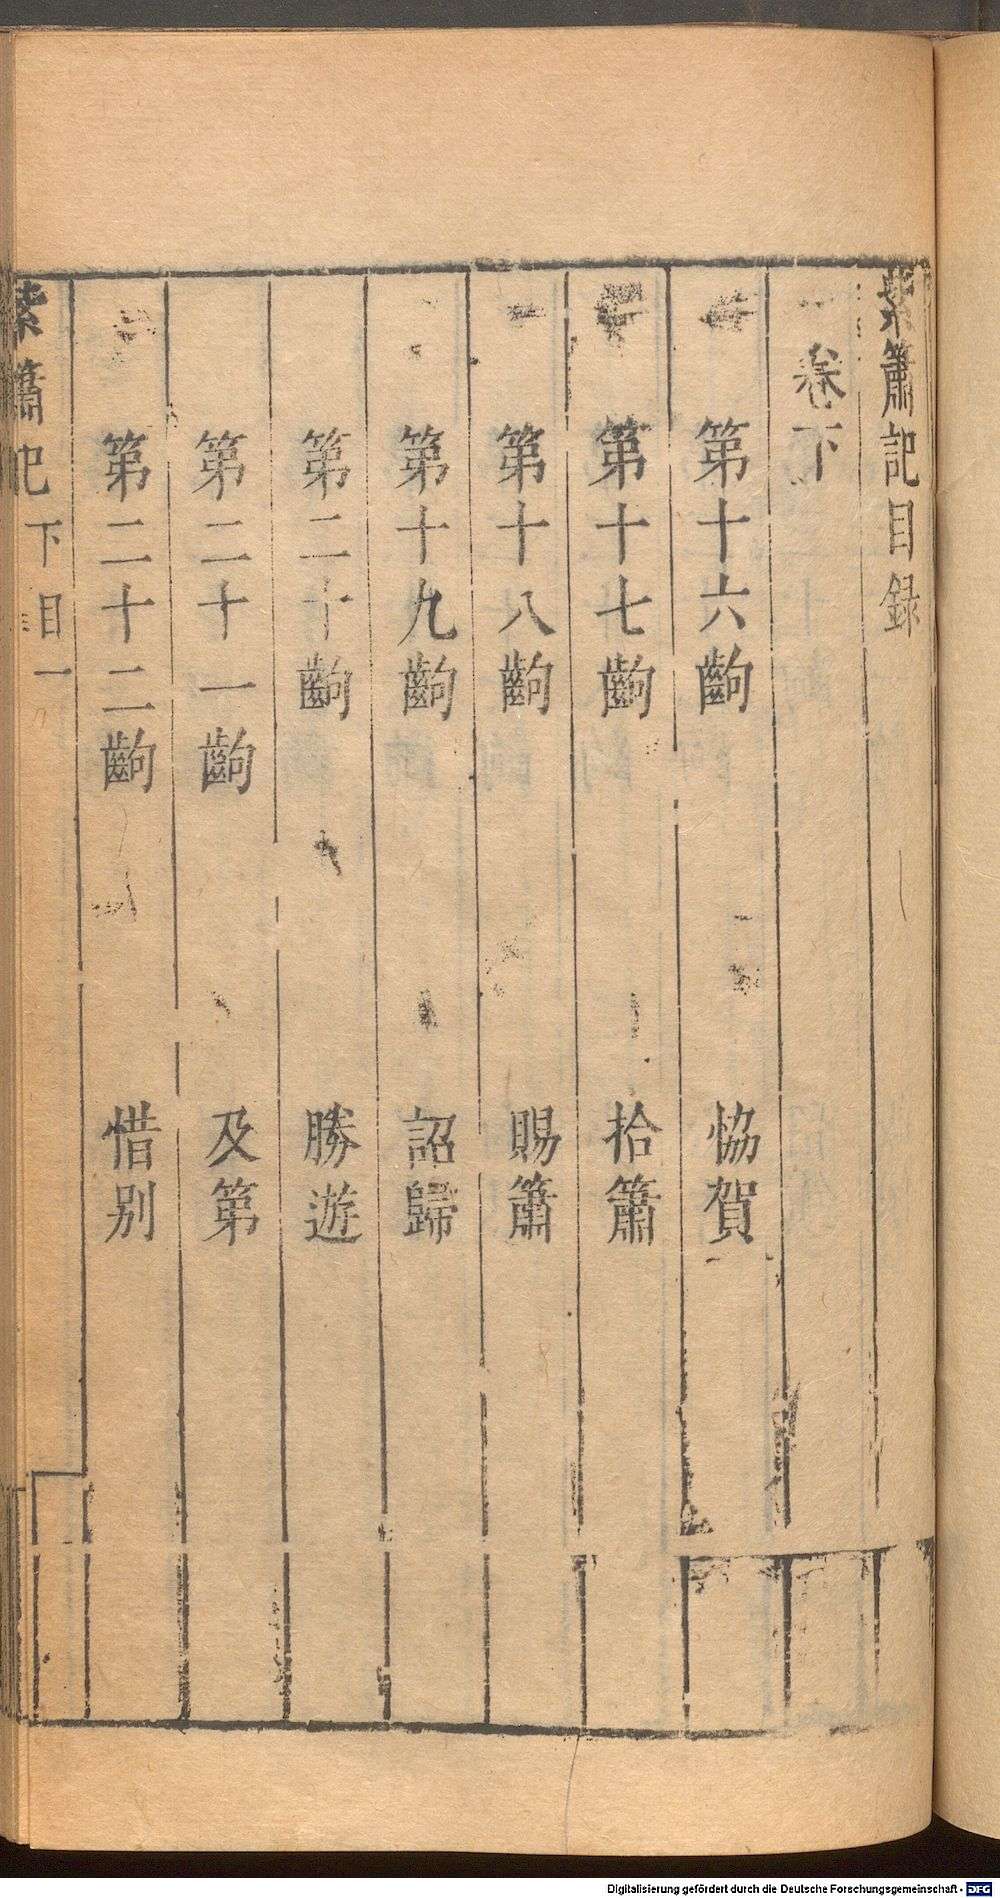 紫簫記目録
卷下
第十六齣 恊賀
第十七齣 拾簫
第十八齣 賜簫
第十九齣 詔歸
第二十齣 勝遊
第二十一齣 及第
第二十二齣 惜别
紫簫記 下目 一
Digitalisierung gefördert durch die Deutsche Forschungsgemeinschaft - DFG